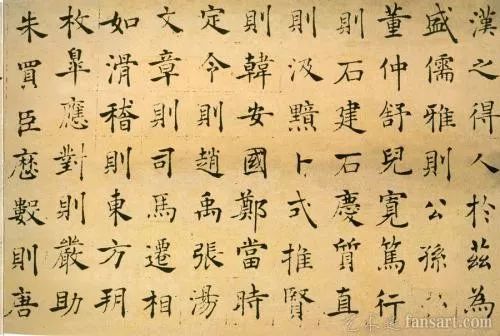 漢之得人於茲為
盛儒雅則公孫
董仲舒兒寬篤行
則石建石慶質直
則汲黯卜式推賢
則韓安國鄭當時
定令則趙禹張湯
文章則司馬遷相
如滑稽則東方朔
枚皐應對則嚴助
朱買臣歷數則唐
fansart.com